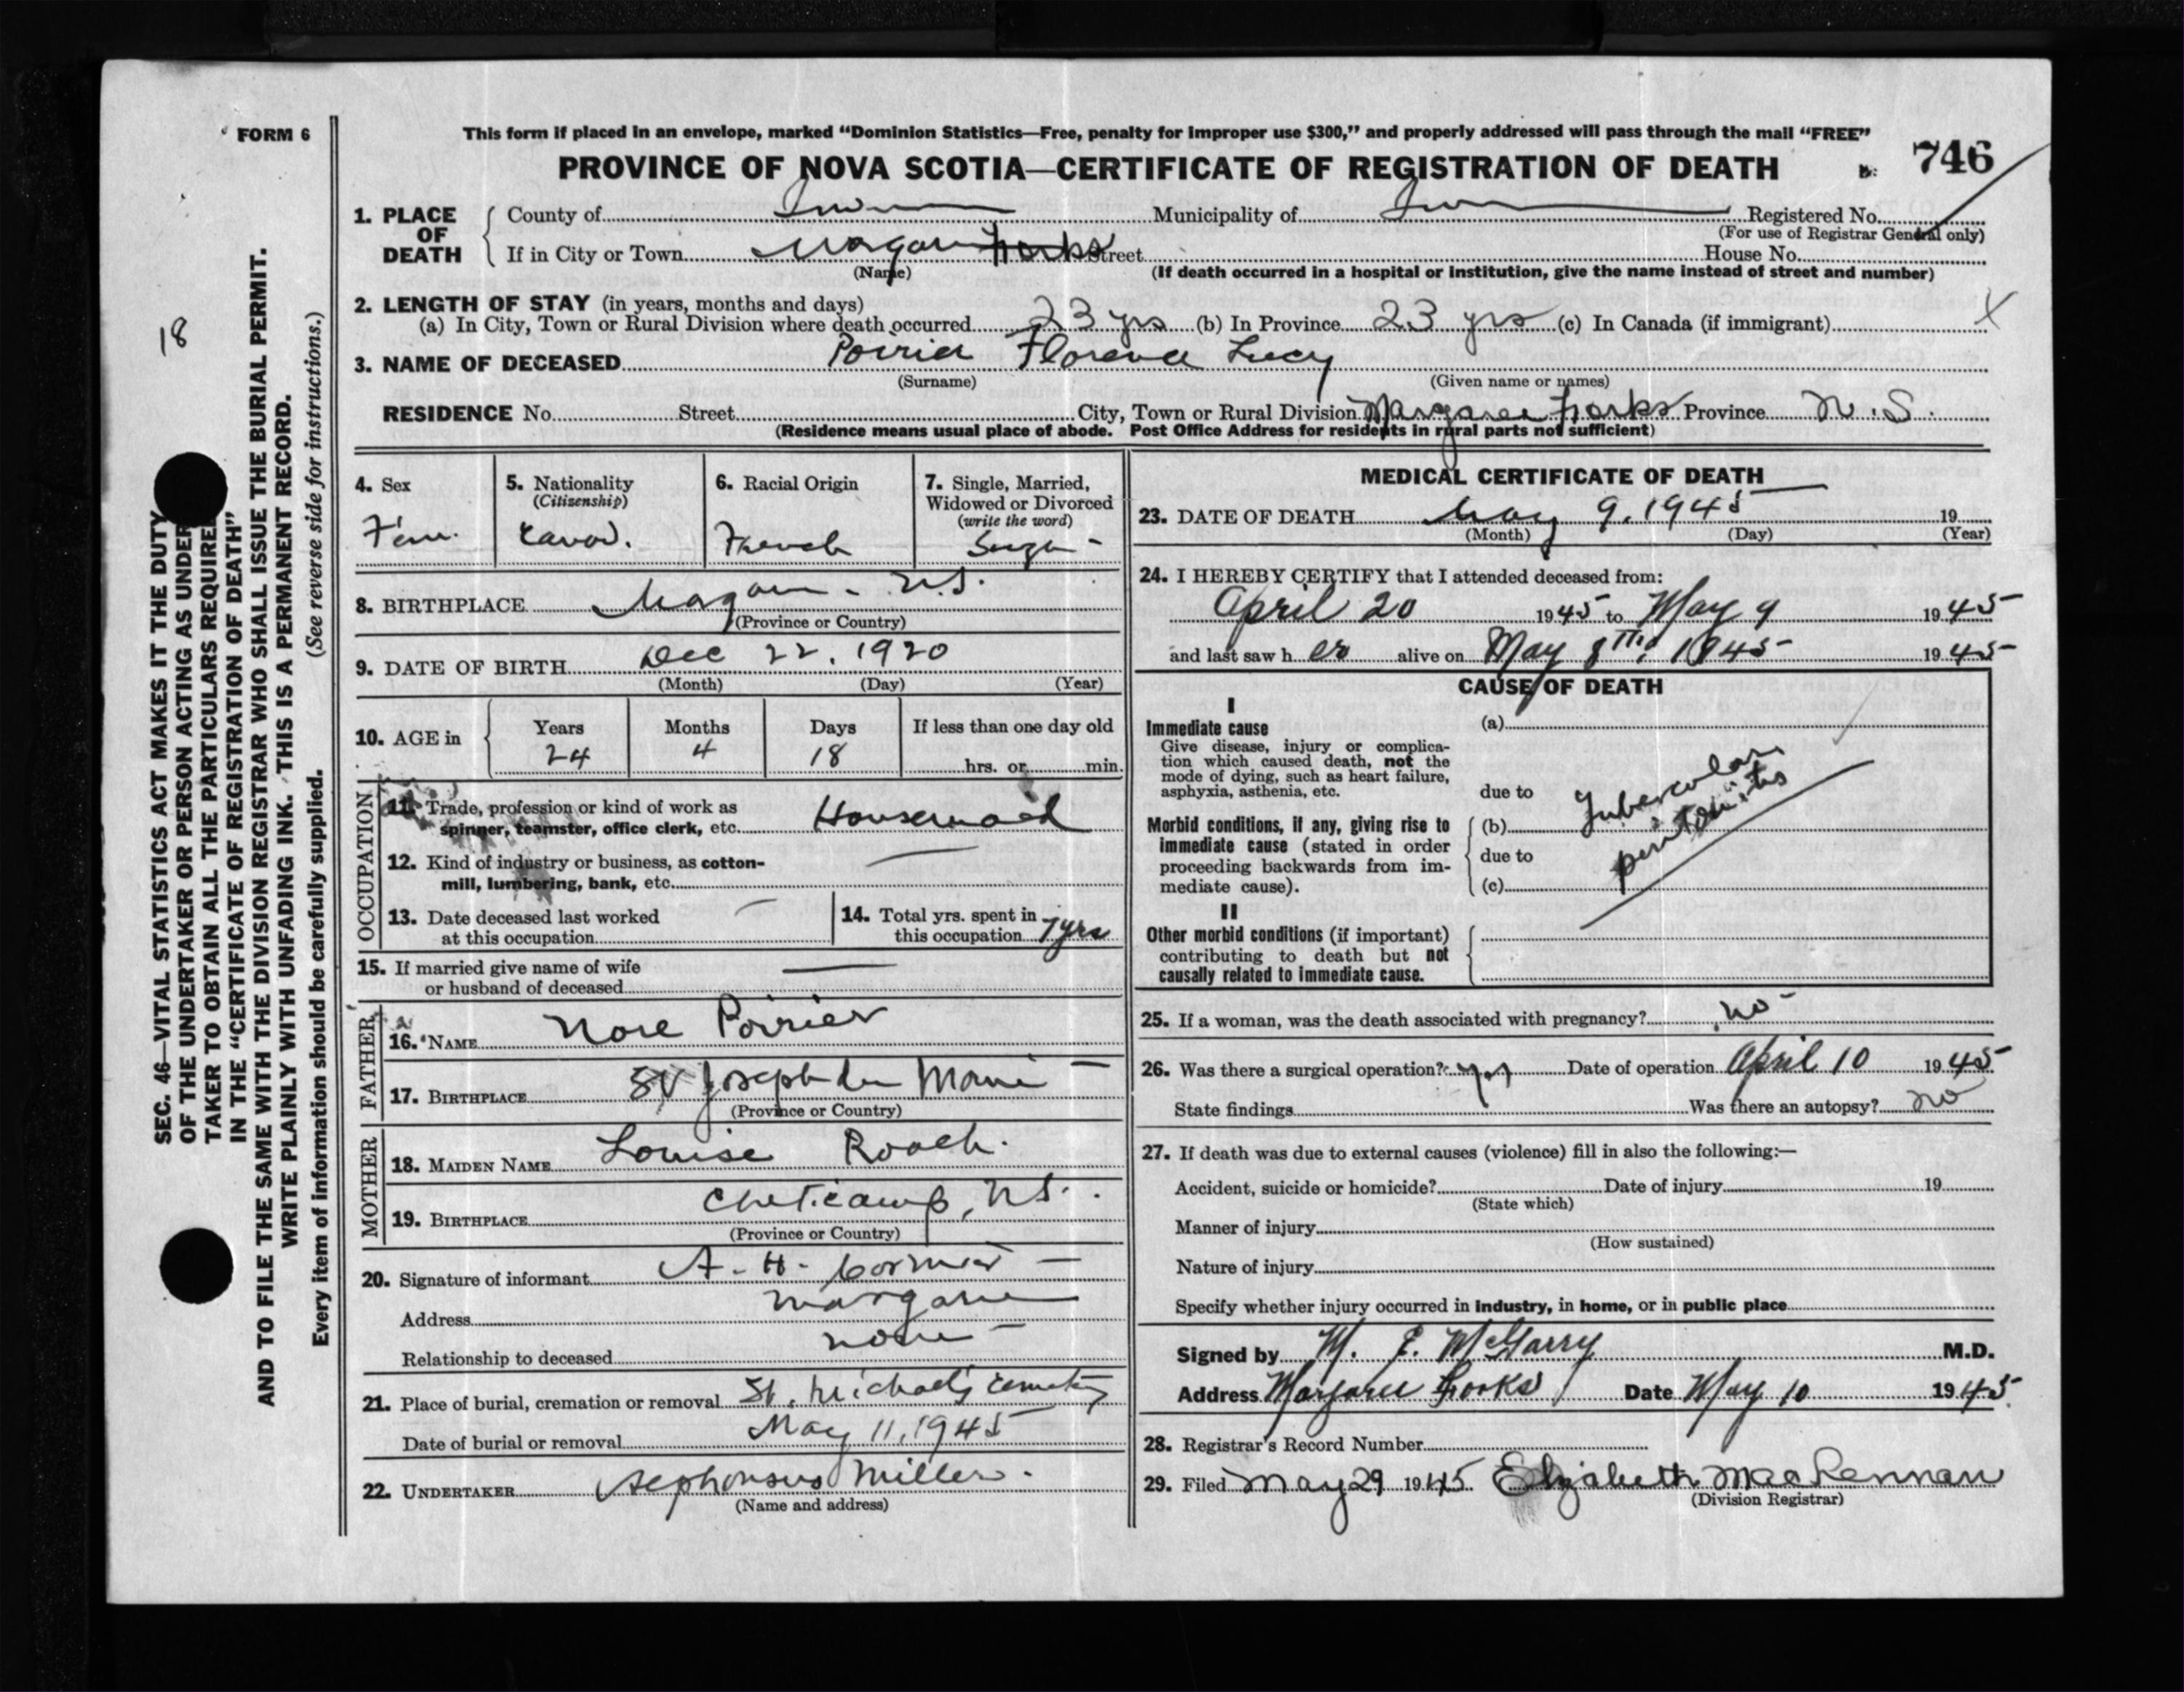 FORM 6
This form if placed in an envelope, marked “Dominion Statistics—Free, penalty for improper use $300,” and properly addressed will pass through the mail “FREE”
PROVINCE OF NOVA SCOTIA—CERTIFICATE OF REGISTRATION OF DEATH
746
1. PLACE OF DEATH
County of Municipality of Registered No.
(For use of Registrar General only)
If in City or Town Margaree Forks Street House No.
(Name) (If death occurred in a hospital or institution, give the name instead of street and number)
2. LENGTH OF STAY (in years, months and days)
(a) In City, Town or Rural Division where death occurred 23 yrs (b) In Province 23 yrs (c) In Canada (if immigrant) X
3. NAME OF DECEASED Poirier Florence Lucy
(Surname) (Given name or names)
RESIDENCE No. Street City, Town or Rural Division Margaree Forks Province N.S.
(Residence means usual place of abode. Post Office Address for residents in rural parts not sufficient)
4. Sex Fem.
5. Nationality (Citizenship) Canad.
6. Racial Origin French
7. Single, Married, Widowed or Divorced (write the word) Single
8. BIRTHPLACE Margaree N.S.
(Province or Country)
9. DATE OF BIRTH Dec 22, 1920
(Month) (Day) (Year)
10. AGE in Years Months Days If less than one day old
24 4 18 hrs. or min.
OCCUPATION
11. Trade, profession or kind of work as spinner, teamster, office clerk, etc. Housemaid
12. Kind of industry or business, as cotton-mill, lumbering, bank, etc. —
13. Date deceased last worked at this occupation —
14. Total yrs. spent in this occupation 7 yrs
15. If married give name of wife or husband of deceased —
FATHER
16. NAME Nore Poirier
17. BIRTHPLACE St Joseph du Moine
(Province or Country)
MOTHER
18. MAIDEN NAME Louise Roach.
19. BIRTHPLACE Cheticamp, N.S.
(Province or Country)
20. Signature of informant A. H. Cormier
Address Margaree
Relationship to deceased none
21. Place of burial, cremation or removal St. Michael's Cemetery
Date of burial or removal May 11, 1945
22. UNDERTAKER Alphonsus Miller.
(Name and address)
MEDICAL CERTIFICATE OF DEATH
23. DATE OF DEATH May 9, 1945 19
(Month) (Day) (Year)
24. I HEREBY CERTIFY that I attended deceased from:
April 20 1945 to May 9 1945
and last saw h er alive on May 8th, 1945 1945
CAUSE OF DEATH
I
Immediate cause
Give disease, injury or complication which caused death, not the mode of dying, such as heart failure, asphyxia, asthenia, etc.
(a)
due to
Morbid conditions, if any, giving rise to immediate cause (stated in order proceeding backwards from immediate cause).
(b) Tubercular
due to peritonitis
(c)
II
Other morbid conditions (if important) contributing to death but not causally related to immediate cause.
25. If a woman, was the death associated with pregnancy? no
26. Was there a surgical operation? yes Date of operation April 10 1945
State findings Was there an autopsy? no
27. If death was due to external causes (violence) fill in also the following:—
Accident, suicide or homicide? Date of injury 19
(State which)
Manner of injury
(How sustained)
Nature of injury
Specify whether injury occurred in industry, in home, or in public place
Signed by M. E. McGarry M.D.
Address Margaree Forks Date May 10 1945
28. Registrar's Record Number
29. Filed May 29 1945. Elizabeth MacLennan
(Division Registrar)
18
SEC. 46—VITAL STATISTICS ACT MAKES IT THE DUTY
OF THE UNDERTAKER OR PERSON ACTING AS UNDER
TAKER TO OBTAIN ALL THE PARTICULARS REQUIRE
IN THE “CERTIFICATE OF REGISTRATION OF DEATH”
AND TO FILE THE SAME WITH THE DIVISION REGISTRAR WHO SHALL ISSUE THE BURIAL PERMIT.
WRITE PLAINLY WITH UNFADING INK. THIS IS A PERMANENT RECORD.
Every item of information should be carefully supplied. (See reverse side for instructions.)